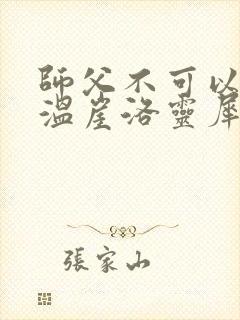 師父不可以
溫崖洛靈犀
張家山